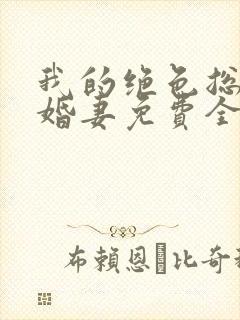 我的绝色总
婚妻免費全
布賴恩·比奇